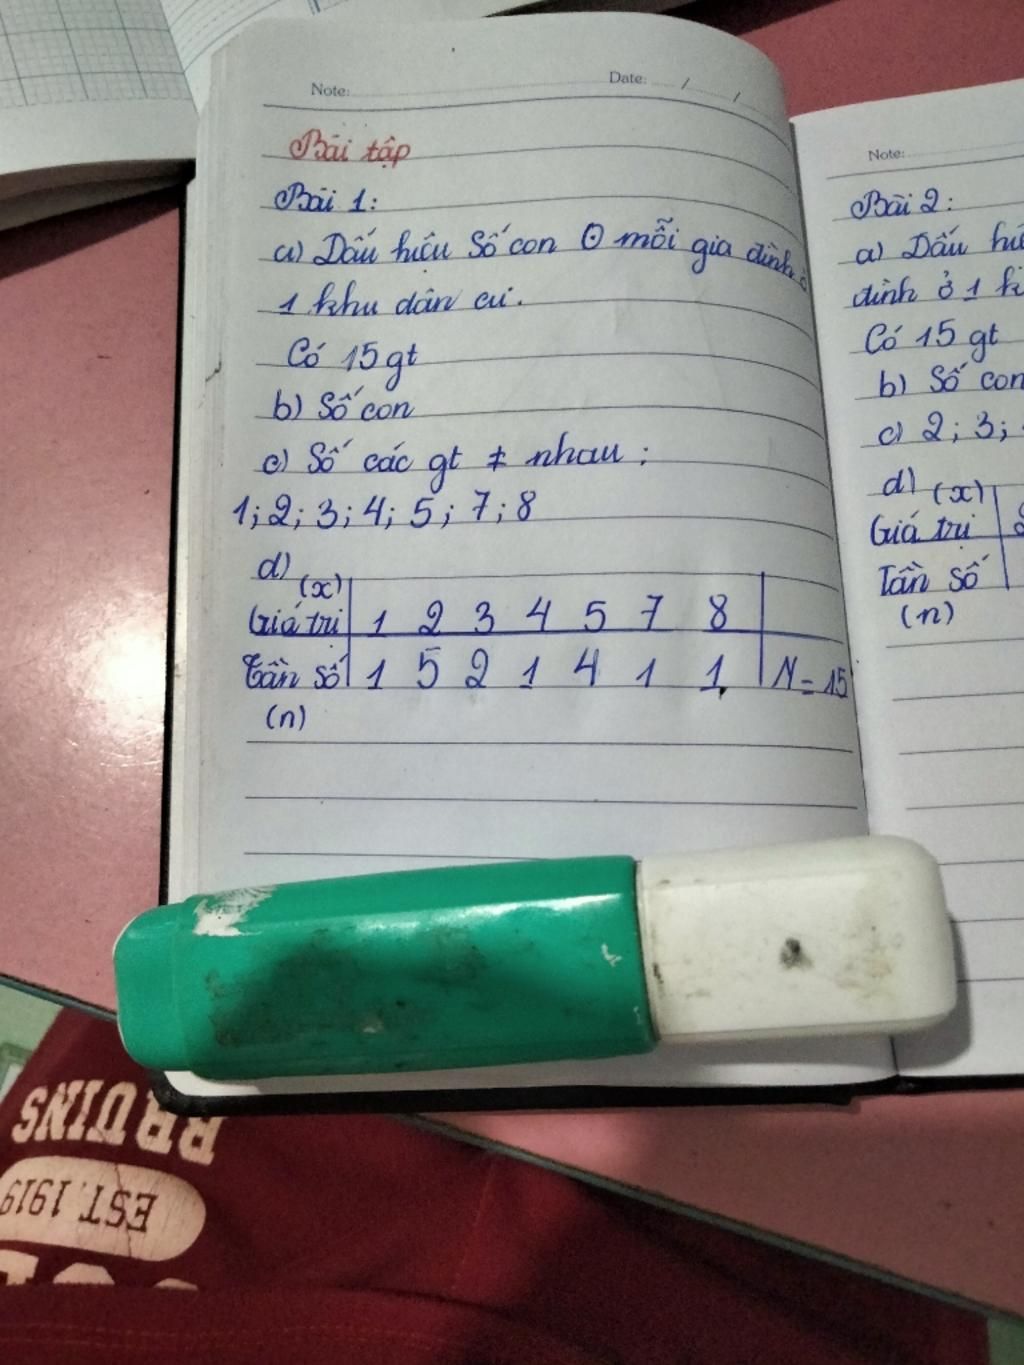 Note: Date: / /
Bài tập
Bài 1:
a) Dấu hiệu Số con ở mỗi gia đình ở
1 khu dân cư.
Có 15 gt
b) Số con
c) Số các gt ≠ nhau :
1; 2; 3; 4; 5; 7; 8
d)
(x)
Giá trị 1 2 3 4 5 7 8
Tần số 1 5 2 1 4 1 1 N = 15
(n)
Note:
Bài 2:
a) Dấu
đình ở 1
Có 15 gt
b) Số con
c) 2; 3;
d) (x)
Giá trị
Tần số
(n)
BRUINS
EST. 1919